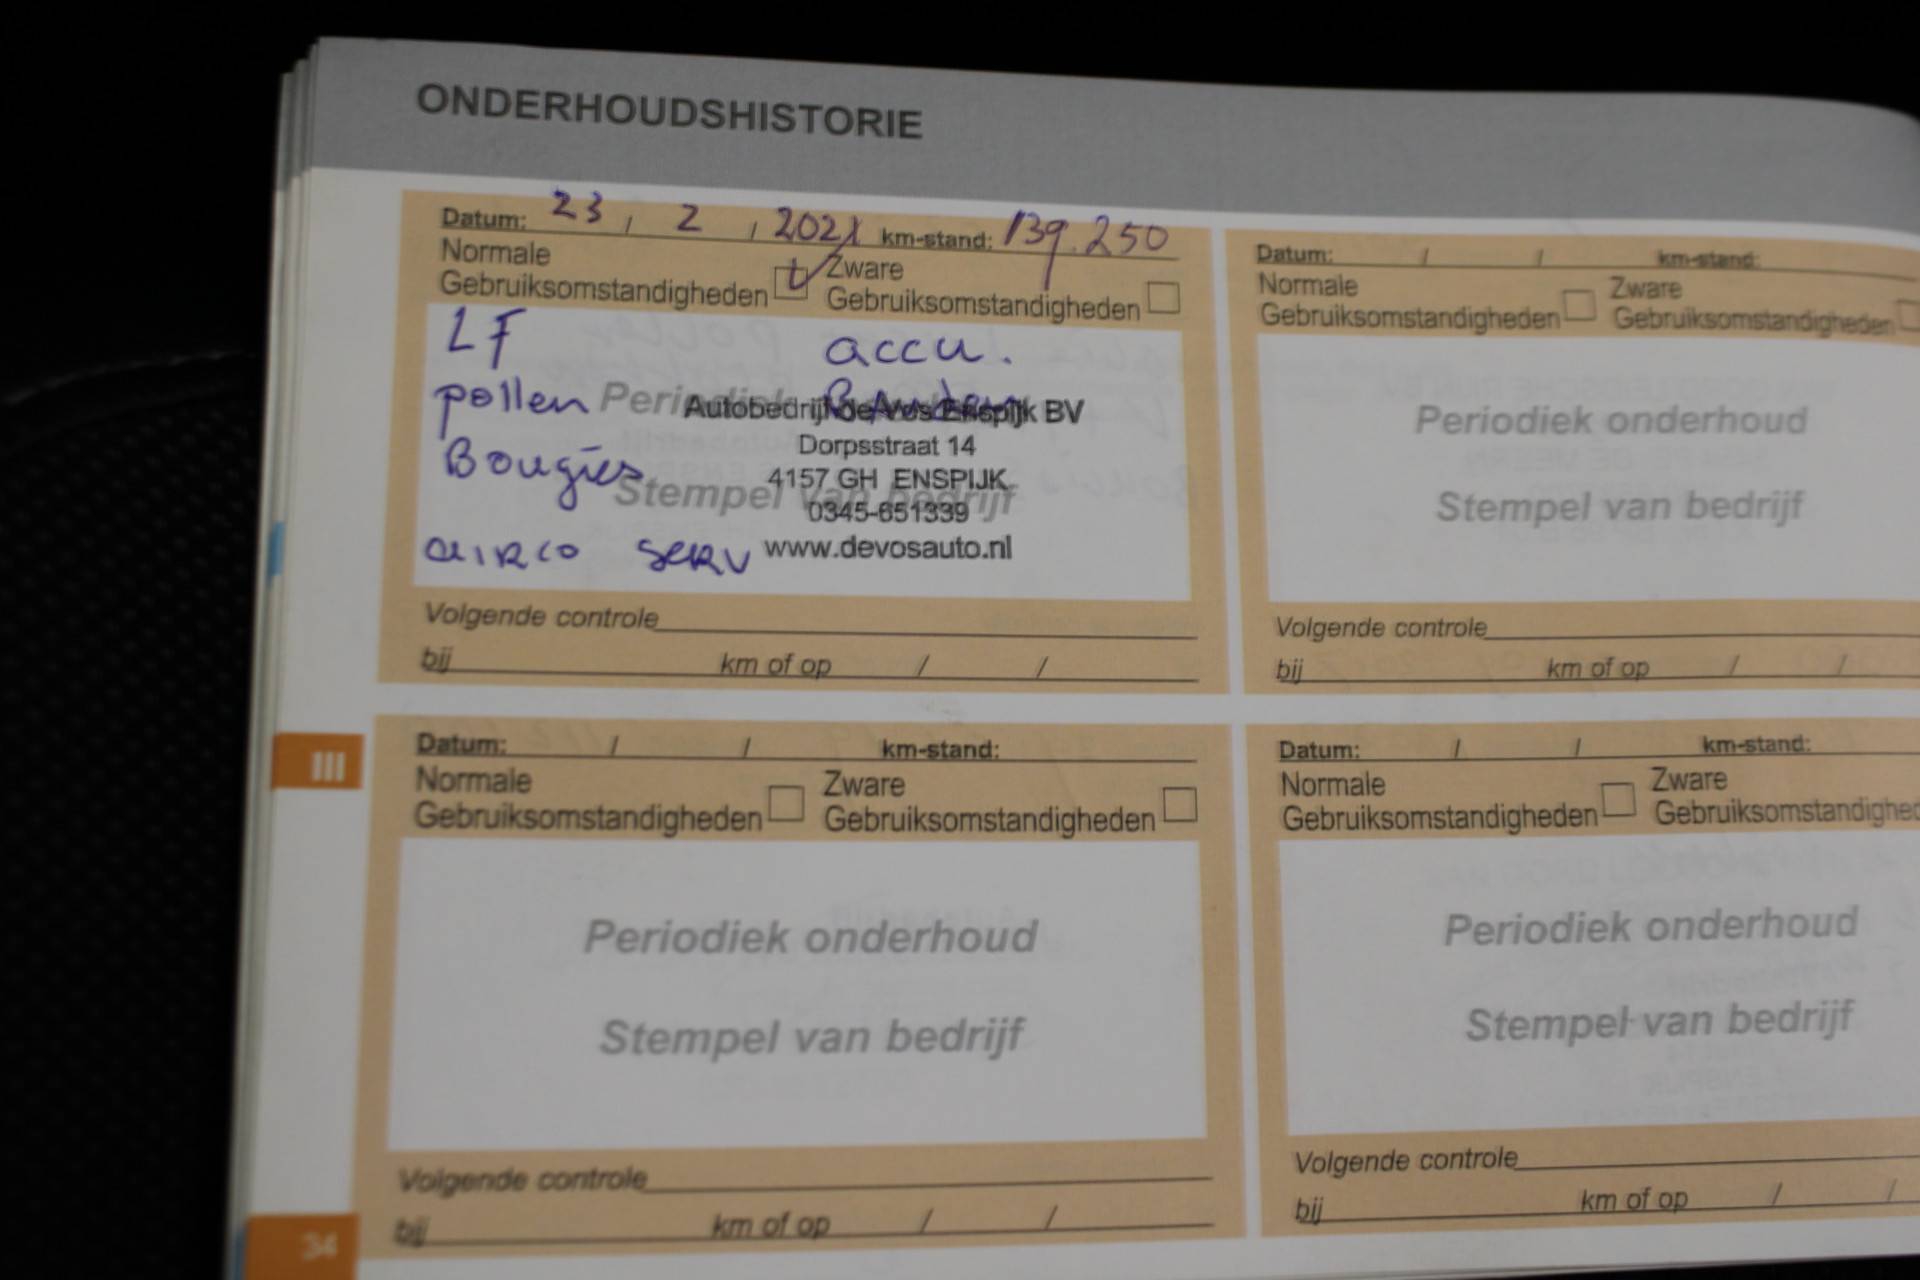 ONDERHOUDSHISTORIE
Datum: 23 / 2 / 2021 km-stand: 139.250
Normale
Gebruiksomstandigheden
Zware
Gebruiksomstandigheden
LF accu.
pollen Banden
Bougies
airco serv
Periodiek
Stempel van bedrijf
Autobedrijf de Vos Enspijk BV
Dorpsstraat 14
4157 GH ENSPIJK
0345-651339
www.devosauto.nl
Volgende controle
bij km of op / /
Datum: / / km-stand:
Normale
Gebruiksomstandigheden
Zware
Gebruiksomstandigheden
Periodiek onderhoud
Stempel van bedrijf
Volgende controle
bij km of op / /
III
Datum: / / km-stand:
Normale
Gebruiksomstandigheden
Zware
Gebruiksomstandigheden
Periodiek onderhoud
Stempel van bedrijf
Volgende controle
bij km of op / /
Datum: / / km-stand:
Normale
Gebruiksomstandigheden
Zware
Gebruiksomstandighed
Periodiek onderhoud
Stempel van bedrijf
Volgende controle
bij km of op / /
34